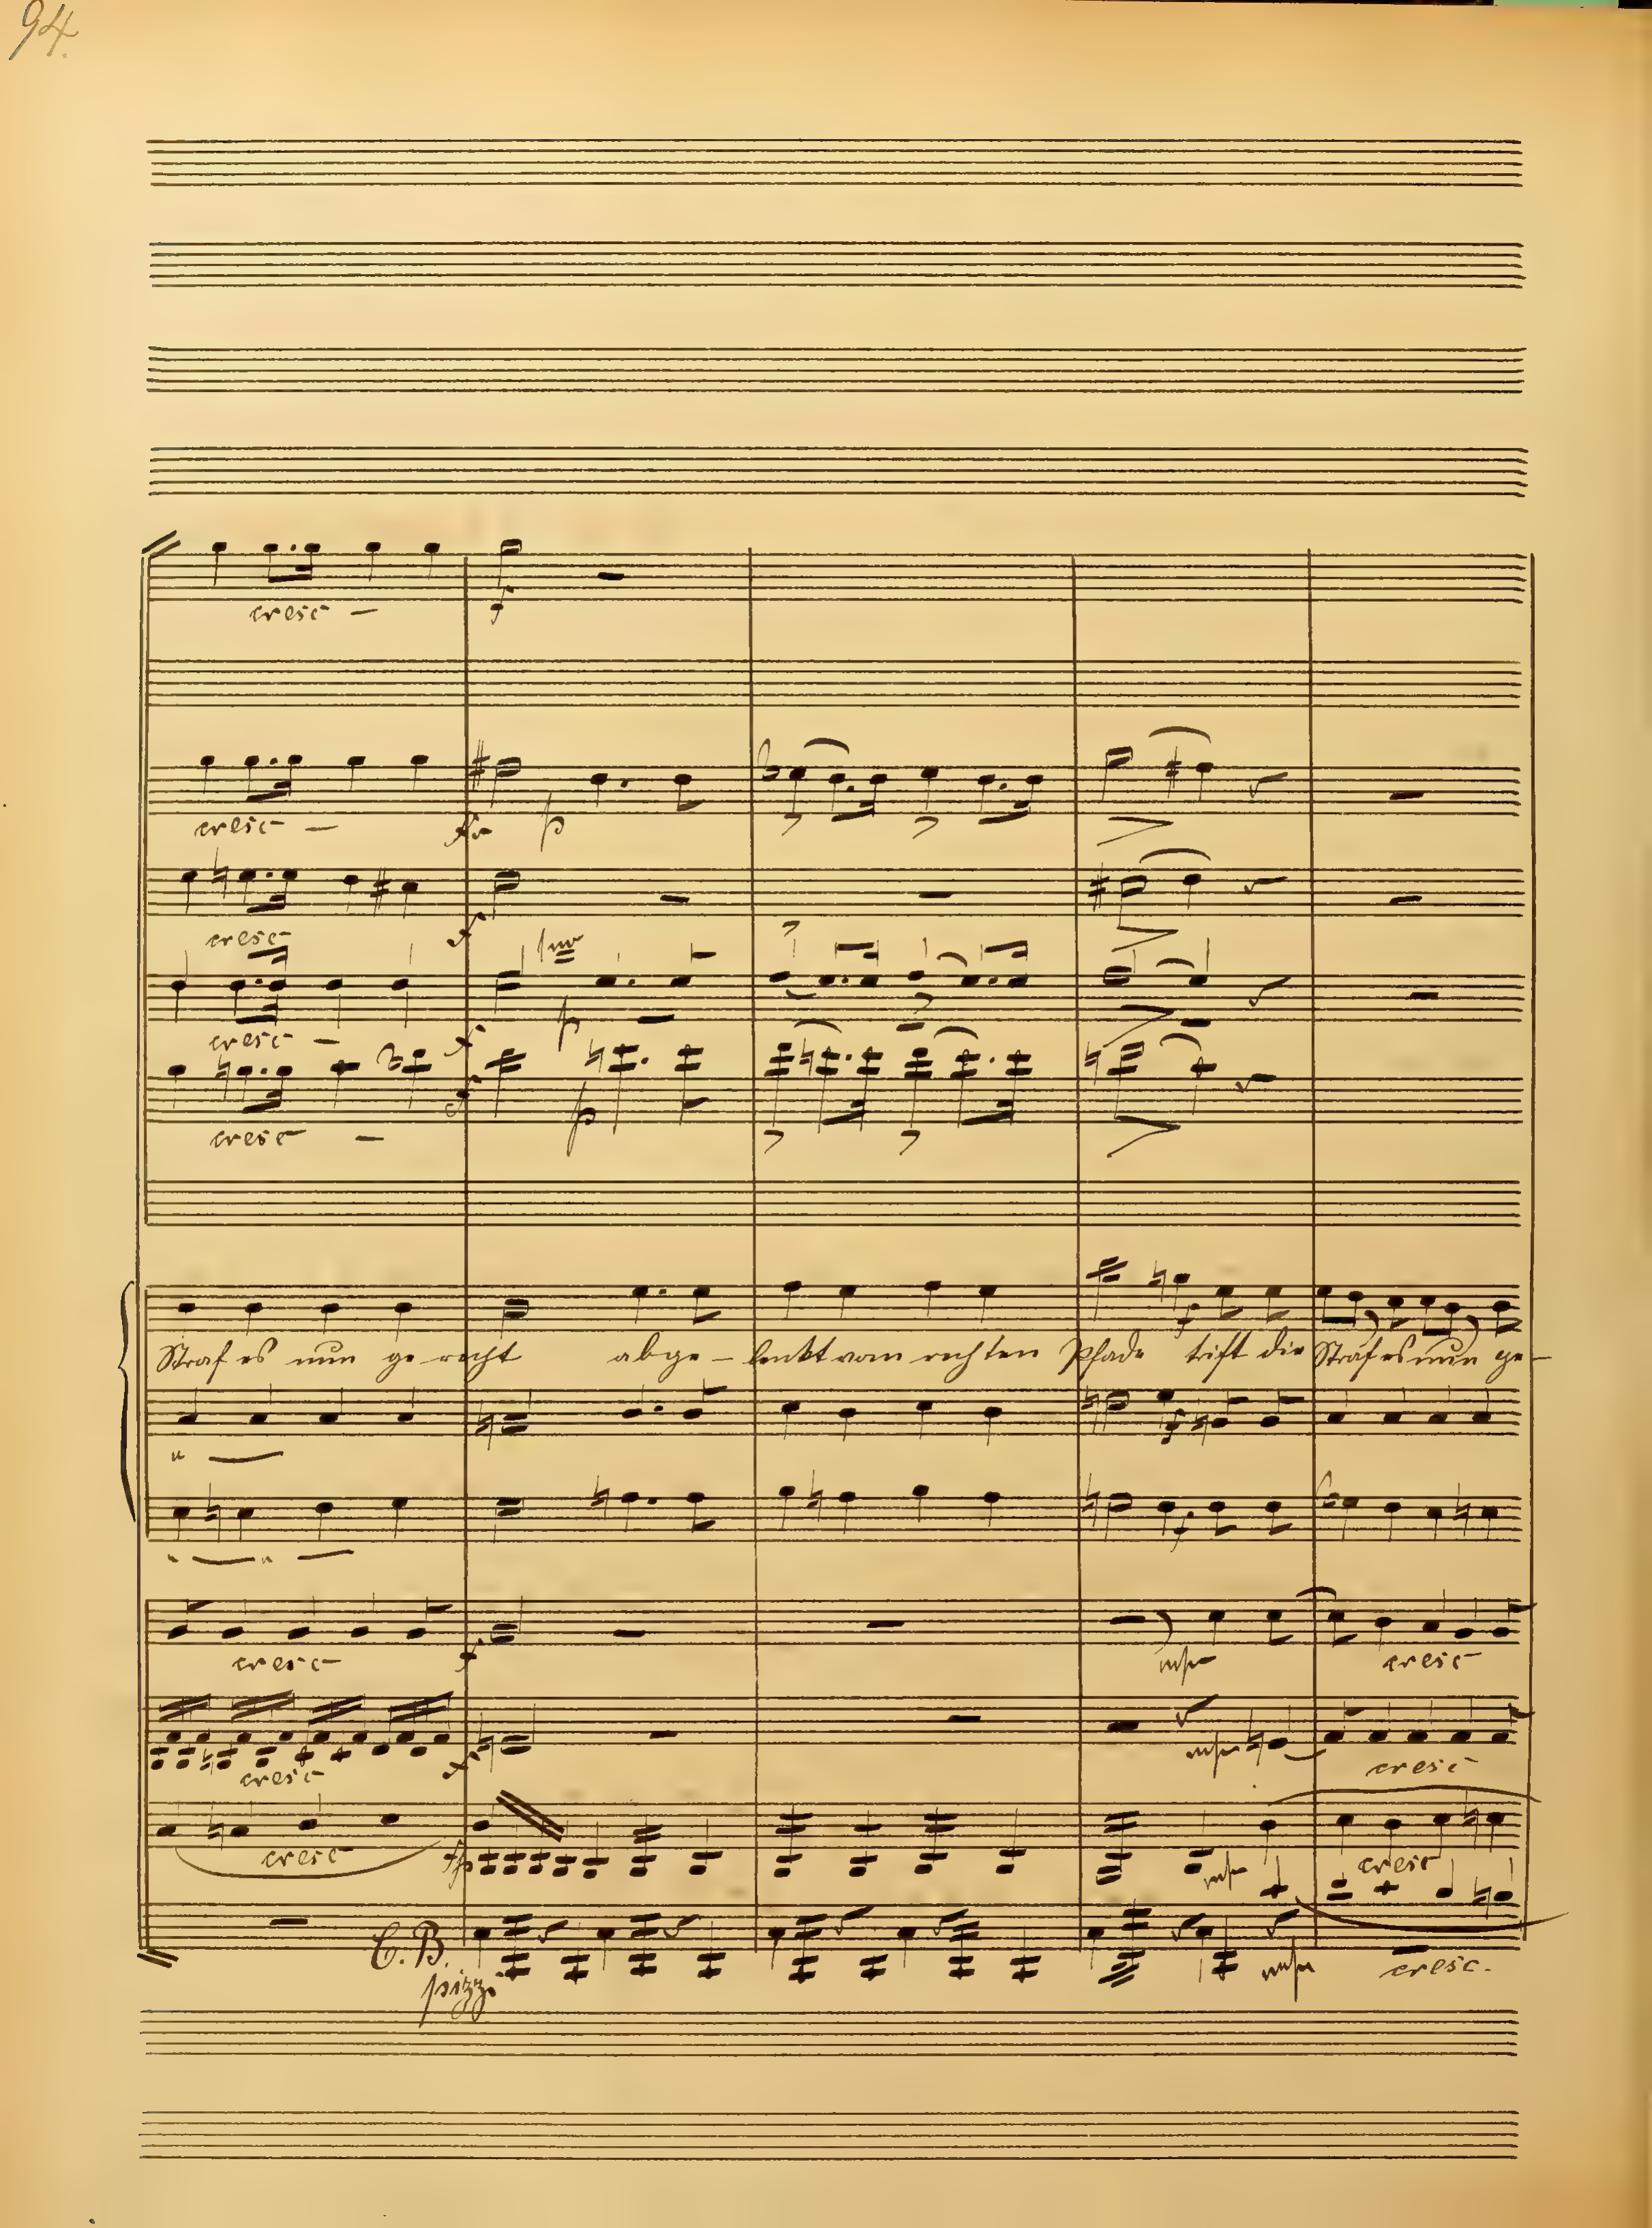 94.
cresc -
f
cresc -
p
cresc
f
1mo
cresc -
f
p
cresc -
f
p
Straf es nun ge-recht abge-lenkt vom rechten Pfade trift die Straf es nun ge-
f
f
f
cresc
f
mfp
cresc
cresc
f
mfp
cresc
cresc
fp
mfp
cresc
C. B.
pizz.
mfp
cresc.